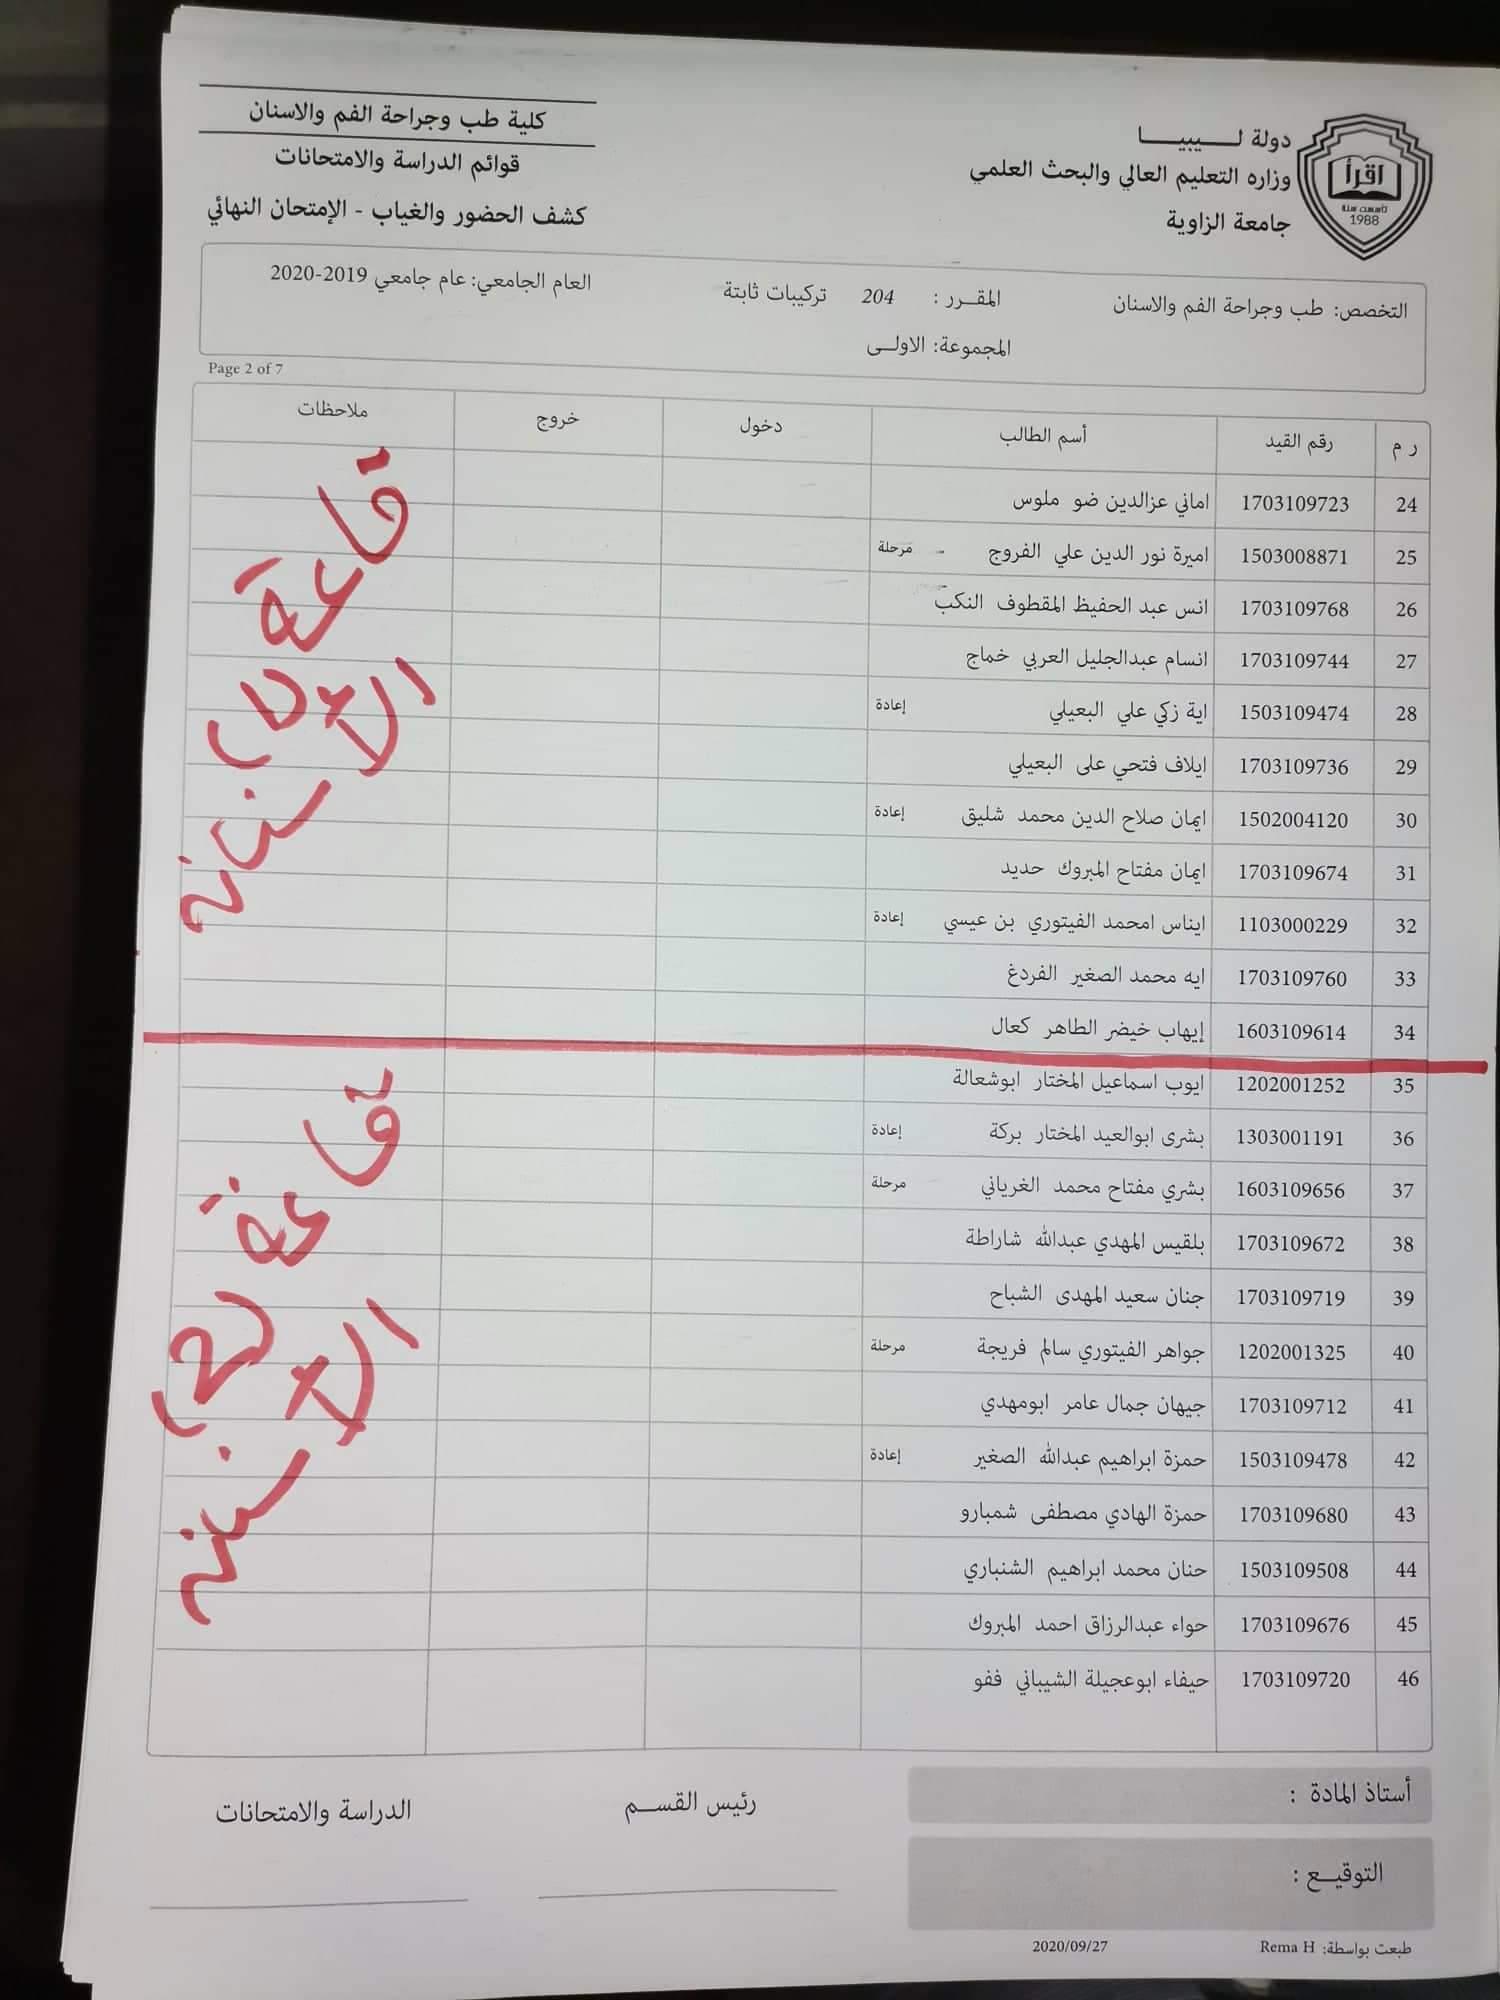 دولة لـــــيبيـــــا
وزاره التعليم العالي والبحث العلمي
جامعة الزاوية
اقرأ
تأسست سنة
1988
كلية طب وجراحة الفم والاسنان
قوائم الدراسة والامتحانات
كشف الحضور والغياب - الإمتحان النهائي
التخصص: طب وجراحة الفم والاسنان المقـــرر : 204 تركيبات ثابتة العام الجامعي: عام جامعي 2019-2020
المجموعة: الاولــى
Page 2 of 7
ر م رقم القيد أسم الطالب دخول خروج ملاحظات
24 1703109723 اماني عزالدين ضو ملوس
25 1503008871 اميرة نور الدين علي الفروج - مرحلة
26 1703109768 انس عبد الحفيظ المقطوف النكب
27 1703109744 انسام عبدالجليل العربي خماج
28 1503109474 اية زكي علي البعيلي إعادة
29 1703109736 ايلاف فتحي على البعيلي
30 1502004120 ايمان صلاح الدين محمد شليق إعادة
31 1703109674 ايمان مفتاح المبروك حديد
32 1103000229 ايناس امحمد الفيتوري بن عيسي إعادة
33 1703109760 ايه محمد الصغير الفردغ
34 1603109614 إيهاب خيضر الطاهر كعال
قاعة (1)
الأسنان
35 1202001252 ايوب اسماعيل المختار ابوشعالة
36 1303001191 بشرى ابوالعيد المختار بركة إعادة
37 1603109656 بشري مفتاح محمد الغرياني مرحلة
38 1703109672 بلقيس المهدي عبدالله شاراطة
39 1703109719 جنان سعيد المهدى الشباح
40 1202001325 جواهر الفيتوري سالم فريجة مرحلة
41 1703109712 جيهان جمال عامر ابومهدي
42 1503109478 حمزة ابراهيم عبدالله الصغير إعادة
43 1703109680 حمزة الهادي مصطفى شمبارو
44 1503109508 حنان محمد ابراهيم الشنباري
45 1703109676 حواء عبدالرزاق احمد المبروك
46 1703109720 حيفاء ابوعجيلة الشيباني ففو
قاعة (2)
أستاذ المادة :
التوقيــع :
رئيس القســم
الدراسة والامتحانات
طبعت بواسطة: Rema H 2020/09/27